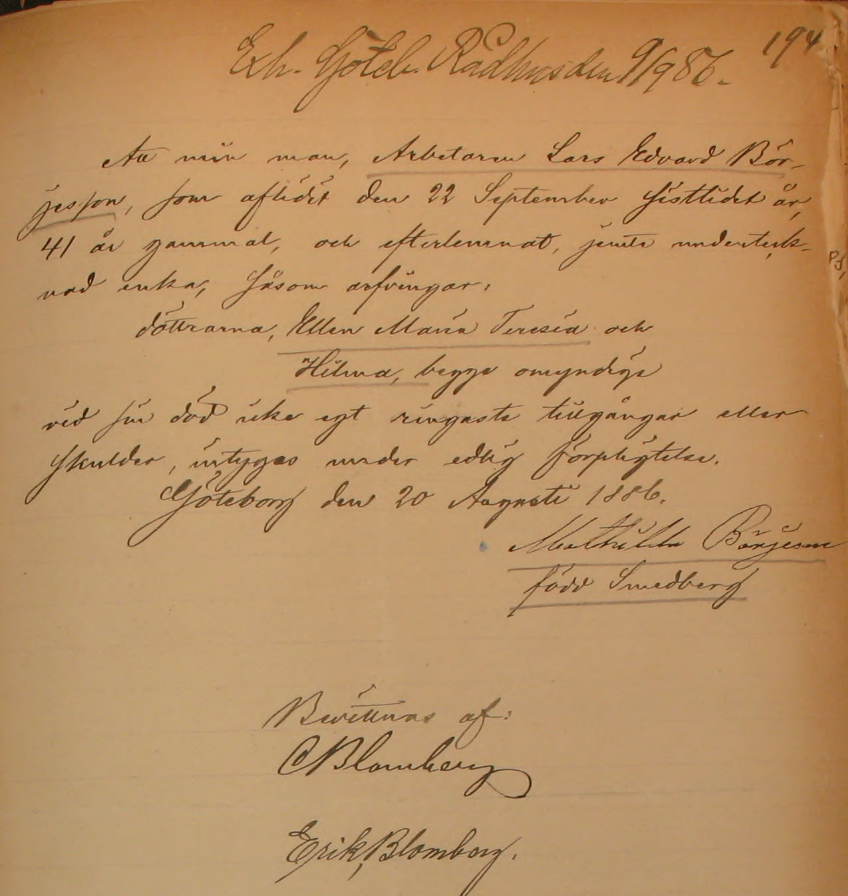 194
Exh. Göteb. Rådhus den 9/9 86.
Att min man, Arbetaren Lars Edvard Bör-
jesson, som aflidit den 22 September sistlidet år,
41 år gammal, och efterlemnat, jemte underteck-
nad enka, såsom arfvingar,
döttrarna, Ellen Maria Teresia och
Hilma, begge omyndige
vid sin död icke egt ringaste tillgångar eller
skulder, intygas under edlig förpligtelse.
Göteborg den 20 Augusti 1886.
Mathilda Börjesson
född Smedberg
Bevittnas af:
C Blomberg
Erik Blomberg.